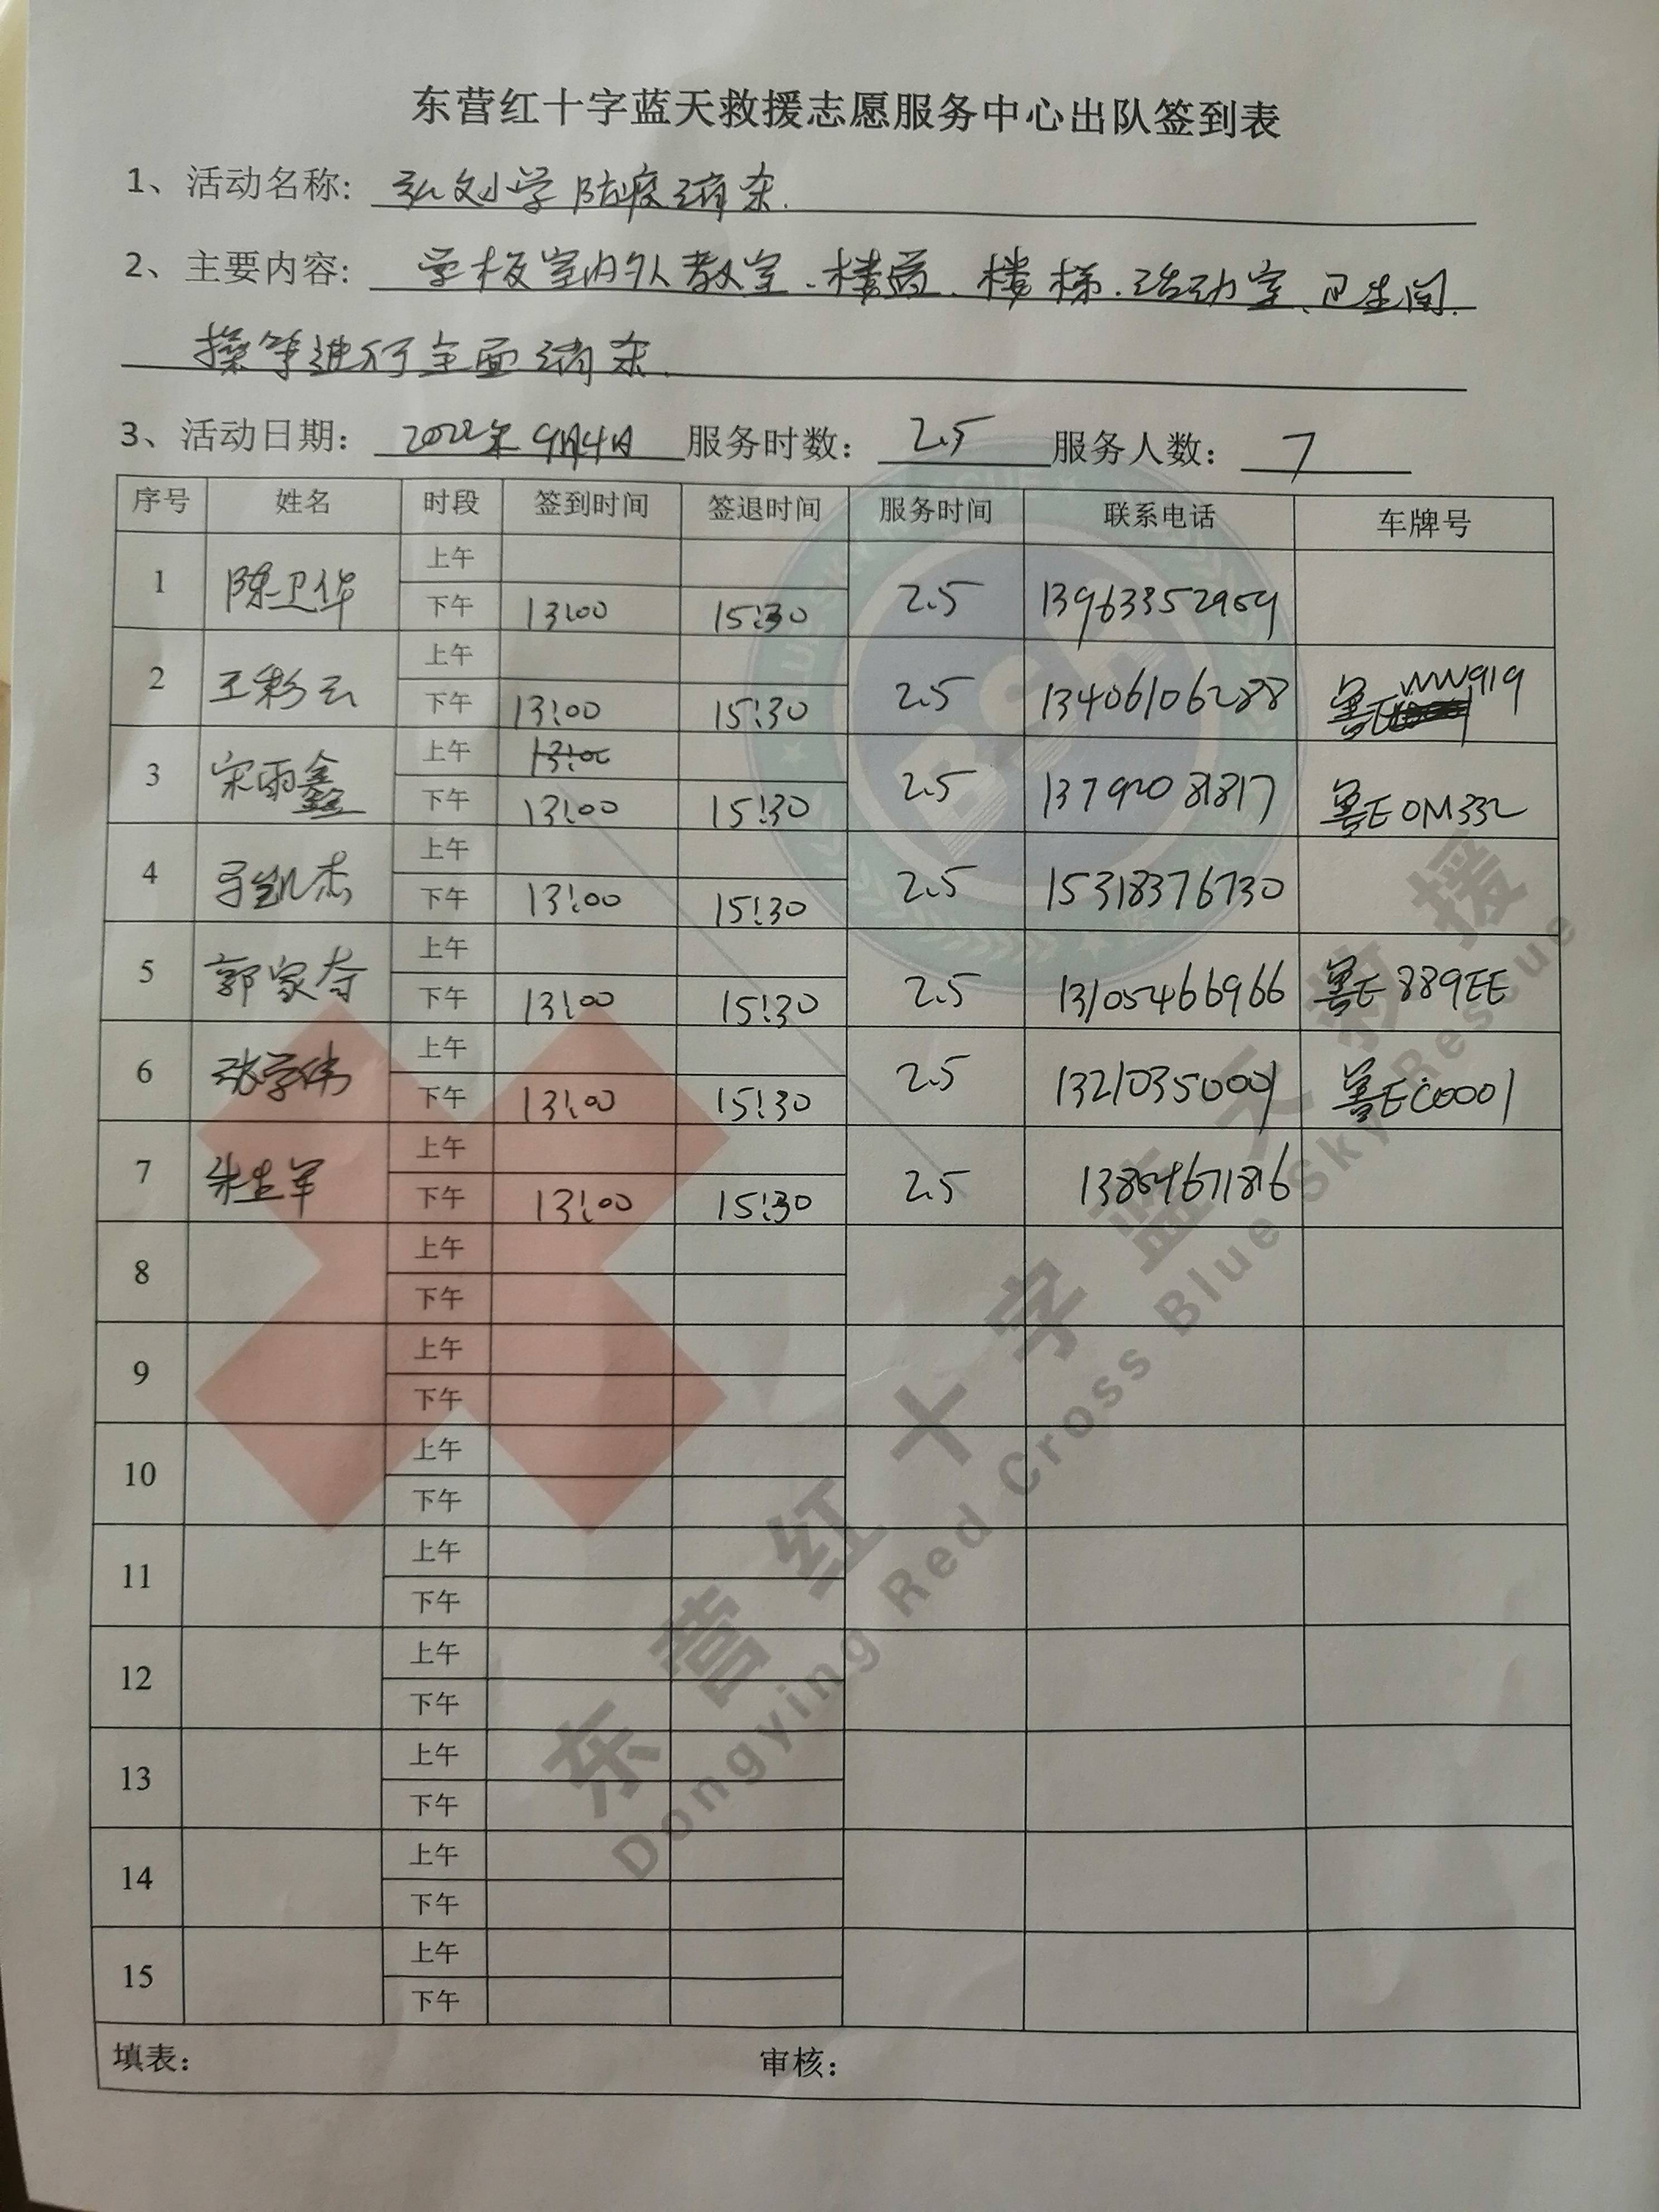 东营红十字蓝天救援志愿服务中心出队签到表
1、活动名称: 弘文小学防疫消杀.
2、主要内容: 学校室内外教室、楼道、楼梯、活动室、卫生间、
操等进行全面消杀.
3、活动日期: 2022年9月4日 服务时数: 2.5 服务人数: 7
序号 姓名 时段 签到时间 签退时间 服务时间 联系电话 车牌号
上午
1 陈卫华 2.5 13963352959
下午 13:00 15:30
上午
2 王彩云 2.5 13406106288 鲁E WW919
下午 13:00 15:30
上午 13:00
3 宋雨鑫 2.5 13792081817 鲁E 0M332
下午 13:00 15:30
上午
4 凯杰 2.5 15318376730
下午 13:00 15:30
上午
5 郭家 2.5 13105466966 鲁E 889EE
下午 13:00 15:30
上午
6 张学伟 2.5 13210350001 鲁EC0001
下午 13:00 15:30
上午
7 朱生军 2.5 13854671816
下午 13:00 15:30
上午
8
下午
上午
9
下午
上午
10
下午
上午
11
下午
上午
12
下午
上午
13
下午
上午
14
下午
上午
15
下午
填表: 审核:
东营红十字蓝天救援
Dongying Red Cross Blue Sky Rescue
BSR